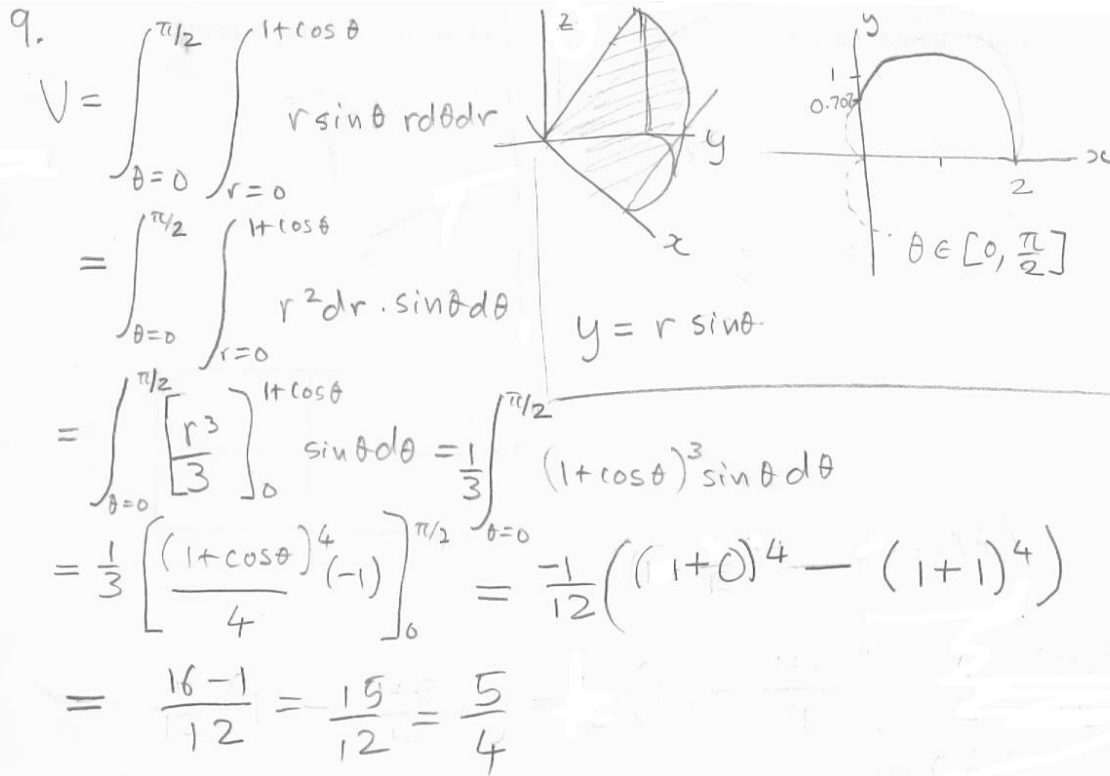 9.
V = ∫_{θ=0}^{π/2} ∫_{r=0}^{1+cos θ} r sin θ r dθ dr
= ∫_{θ=0}^{π/2} ∫_{r=0}^{1+cos θ} r² dr . sin θ dθ
= ∫_{θ=0}^{π/2} [r³/3]_0^{1+cos θ} sin θ dθ = 1/3 ∫_{θ=0}^{π/2} (1+cos θ)³ sin θ dθ
= 1/3 [(1+cos θ)⁴/4 (-1)]_0^{π/2} = -1/12 ((1+0)⁴ - (1+1)⁴)
= 16-1/12 = 15/12 = 5/4
z
y
x
y
1
0.707
x
2
θ ∈ [0, π/2]
y = r sin θ